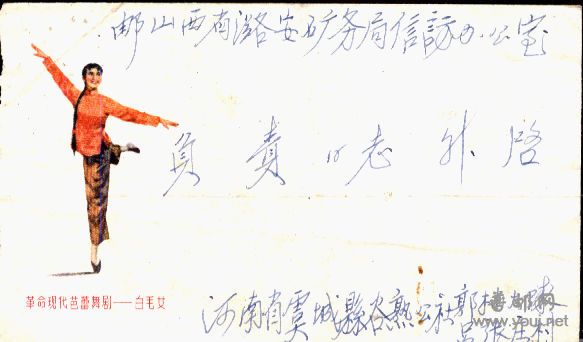 邮山西省潞安矿务局信访办公室
负责同志 启
革命现代芭蕾舞剧——白毛女
河南省虞城縣谷熟公社郭
吕张庄村
www.youi.net